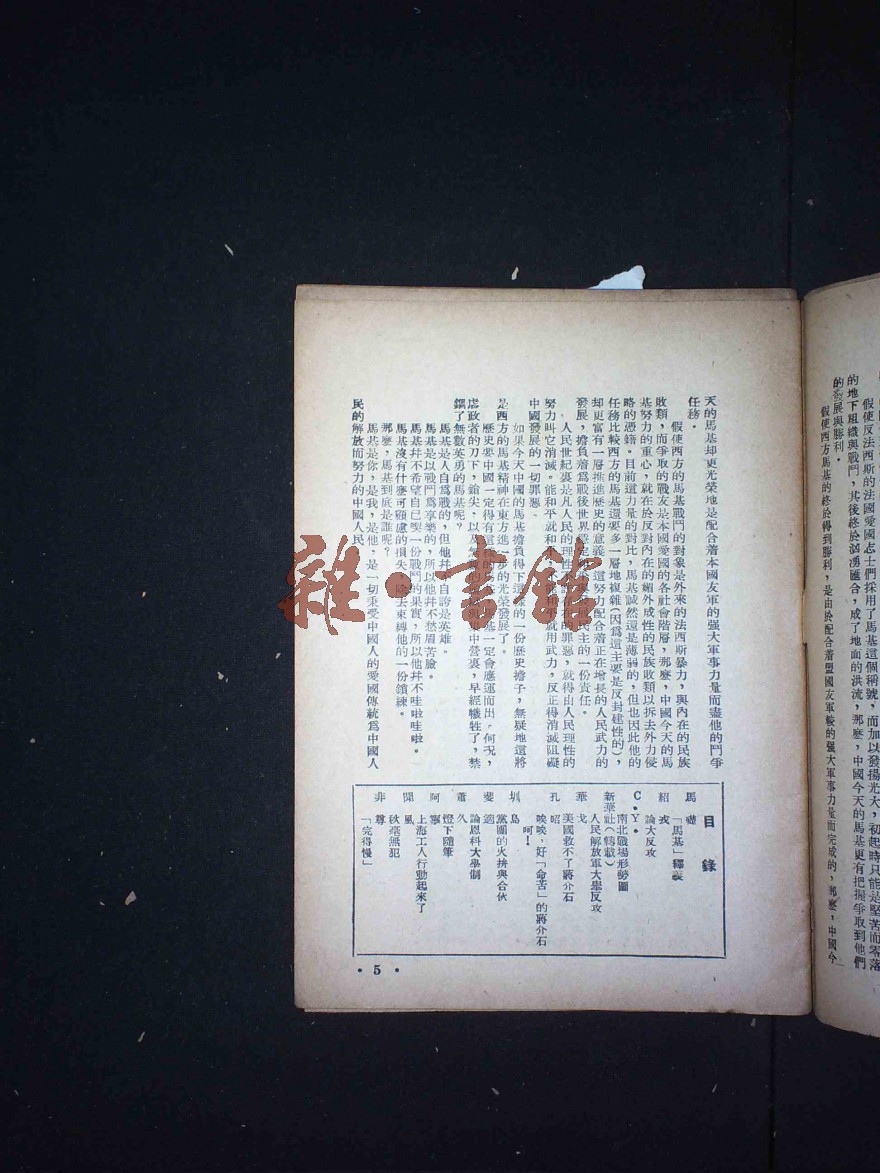 假使反法西斯的法國愛國志士們採用了馬基這個稱號，而加以發揚光大，初起時只能是堅苦而零落
的地下組織與戰鬥，其後終於汹湧匯合，成了地面的洪流，那麼，中國今天的馬基更有把握爭取到他們
的發展與勝利。
假使西方馬基的終於得到勝利，是由於配合着盟國友軍的强大軍事力量而完成的，那麼，中國今
天的馬基却更光榮地是配合着本國友軍的强大軍事力量而盡他的鬥爭
任務。
假使西方的馬基戰鬥的對象是外來的法西斯暴力，與內在的民族
敗類，而爭取的戰友是本國愛國的各社會階層，那麼，中國今天的馬
基努力的重心，就在於反對內在的媚外成性的民族敗類以拆去外力侵
略的憑藉。目前這力量的對比，馬基誠然還是薄弱的，但也因此他的
任務比較西方的馬基還要多一層地複雜（因爲這主要是反封建性的），
却更富有一層推進歷史的意義，這努力配合着正在增長的人民武力的
發展，擔負着爲戰後世界民主的一份責任。
人民世紀裏是凡人民的理性存在的罪惡，就得由人民理性的
努力叫它消滅。能和平就和平，不能和平就用武力，反正得消滅阻礙
中國發展的一切罪惡。
如果今天中國的馬基擔負得下這樣的一份歷史擔子，無疑地這將
是西方的馬基精神在東方進一步的光榮發展了。
歷史要中國一定得有這樣的馬基，馬基一定會應運而出。何况，
虐政者的刀下，鎗尖，以及集中營裏，早經犧牲了，禁
錮了無數英勇的馬基呢？
馬基是人自爲戰的，但他并不自誇是英雄。
馬基是以戰鬥爲享樂的，所以他并不愁眉苦臉。
馬基并不希望自己喫一份戰鬥的果實，所以他并不哇啦哇啦。
馬基沒有什麼可顧慮的損失，除去束縛他的一份鎖練。
那麼，馬基到底是誰呢？
馬基是你，是我，是他，是一切秉受中國人的愛國傳統爲中國人
民的解放而努力的中國人民。
目錄
馬礎 「馬基」釋義
紹戎 論大反攻
C·Y· 南北戰場形勢圖
新華社（轉載） 人民解放軍大舉反攻
華戈 美國救不了蔣介石
孔昭 唉唉，好「命苦」的蔣介石呵！
圳島 黨團的火拚與合伙
斐適 論恩科大學制
蕭久 燈下隨筆
阿寧 上海工人行動起來了
聞風 秋毫無犯
非尊 「完得慢」
·5·
雜·書館